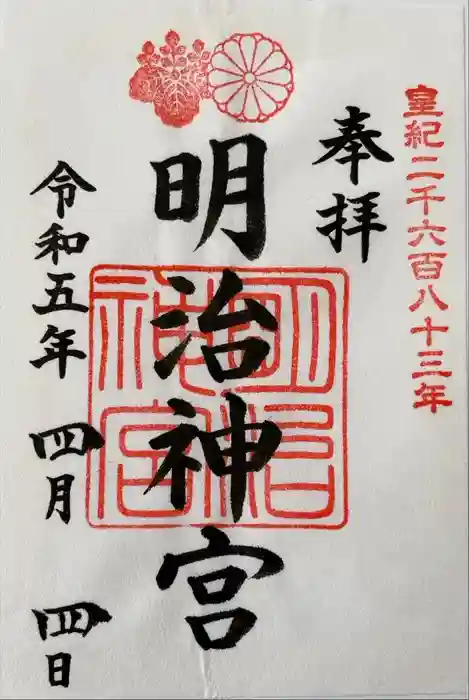 皇紀二千六百八十三年
奉拝
明治神宮
明治神宮
令和五年 四月 四日